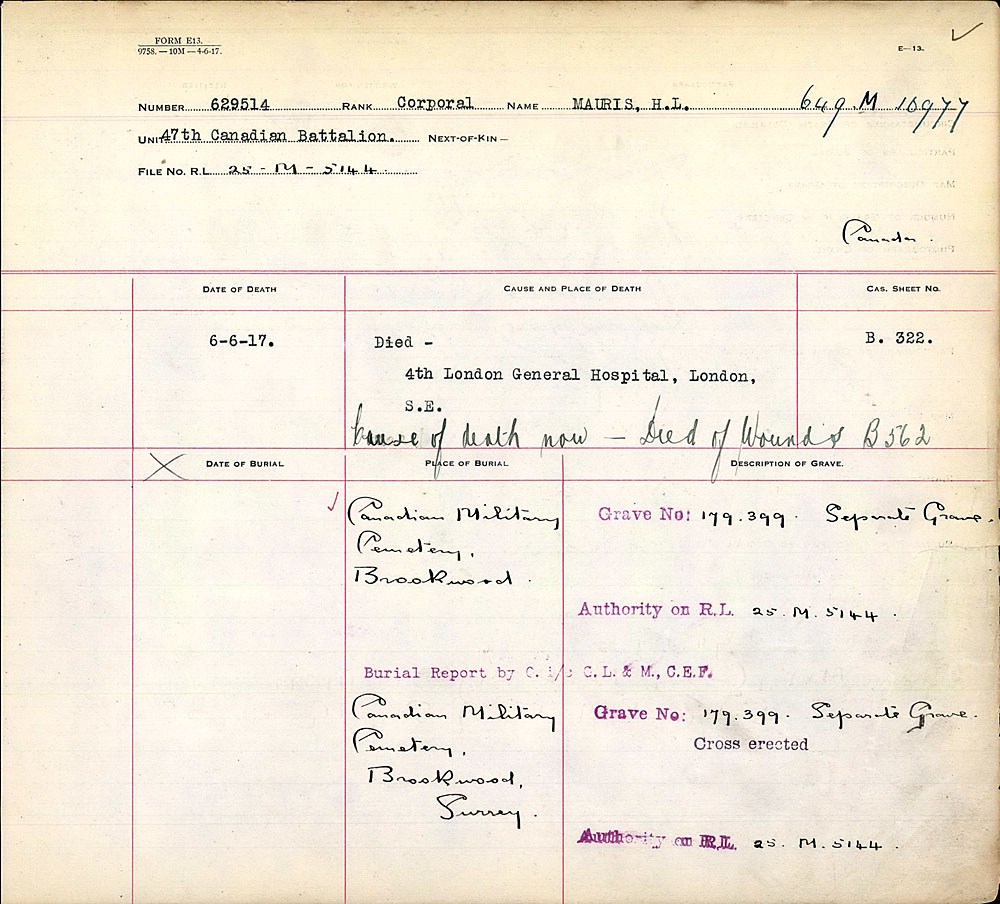 FORM E13.
9758. — 10M — 4-6-17.
E—13.
NUMBER 629514 RANK Corporal NAME MAURIS, H.L. 649 M 10977
UNIT 47th Canadian Battalion. NEXT-OF-KIN —
FILE NO. R.L. 25 - M - 5144.
Canada.
DATE OF DEATH CAUSE AND PLACE OF DEATH CAS. SHEET NO.
6-6-17. Died - B. 322.
4th London General Hospital, London,
S.E.
Cause of death now — Died of Wounds B562
DATE OF BURIAL PLACE OF BURIAL DESCRIPTION OF GRAVE.
Canadian Military Grave No: 179.399. Separate Grave.
Cemetery,
Brookwood.
Authority on R.L. 25. M. 5144.
Burial Report by O. i/c C. L. & M., C.E.F.
Canadian Military Grave No: 179.399. Separate Grave.
Cemetery, Cross erected
Brookwood,
Surrey.
Authority on R.L. 25. M. 5144.